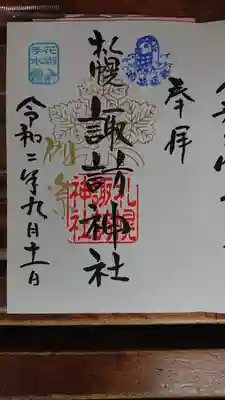 奉拝
札幌
諏訪神社
札幌
諏訪
神社
令和二年九月十一日
花手水